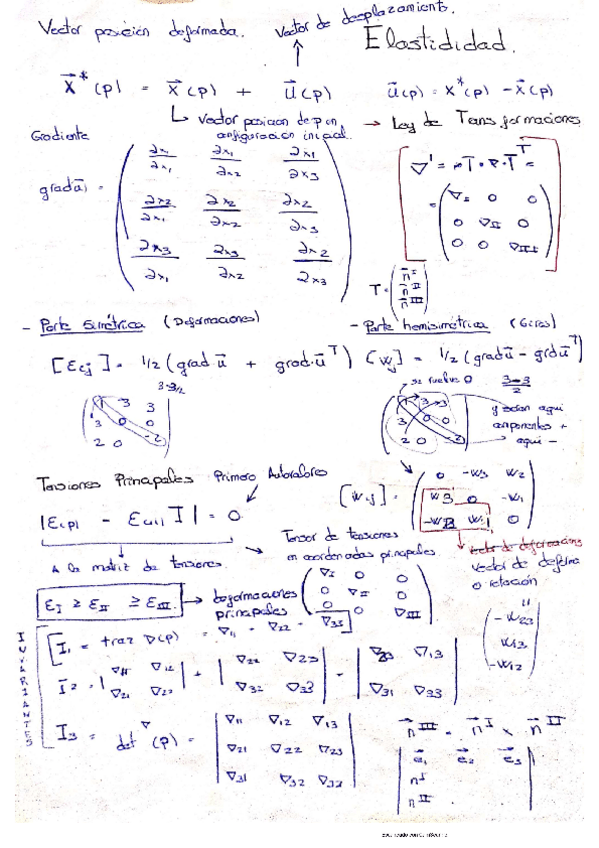 Vector posición deformada.
Vector de desplazamiento.
Elastididad.
x⃗*(p) = x⃗(p) + u⃗(p)
u⃗(p) = x*(p) - x⃗(p)
↳ Vector posicion de p en configuración inicial.
→ Ley de Transformaciones
Gradiente
grad u⃗ =
∂x₁/∂x₁ ∂x₁/∂x₂ ∂x₁/∂x₃
∂x₂/∂x₁ ∂x₂/∂x₂ ∂x₂/∂x₃
∂x₃/∂x₁ ∂x₃/∂x₂ ∂x₂/∂x₃
∇' = T · ∇ · Tᵀ =
= ∇I 0 0
0 ∇II 0
0 0 ∇III
T = n⃗ I
n⃗ II
n⃗ III
- Parte simétrica (Deformaciones)
- Parte hemisimétrica (Giros)
[Eij] = 1/2 (grad u⃗ + grad u⃗ᵀ)
[Wij] = 1/2 (grad u⃗ - grd u⃗ᵀ)
1 3 3
3 0 0
2 0 -2
→ se vuelve 0
3-3/2
3 0 0
2 0 -2
aqui
componentes +
aqui -
Tensiones Principales Primero Autovalores
[Wij] =
0 -W3 W2
W3 0 -W1
0
= 0
A la matriz de tensiones.
→ Tensor de tensiones
en coordenadas principales.
∇I 0 0
0 ∇II 0
0 0 ∇III
Vector de
o rotación
EI ≥ EII ≥ EIII.
→ deformaciones principales
-W23
W13
-W12
INVARIANTES
I₁ = traz ∇(p) = ∇11 - ∇22 - ∇33
I₂ = |∇11 ∇12
∇21 ∇22| + |∇22 ∇23
∇32 ∇33| - | ∇13
∇31 ∇33|
I₃ = det ∇(p) =
∇11 ∇12 ∇13
∇21 ∇22 ∇23
∇31 ∇32
n⃗ III = n⃗ I × n⃗ II
e⃗₁ e⃗₂ e⃗₃
n I
n II